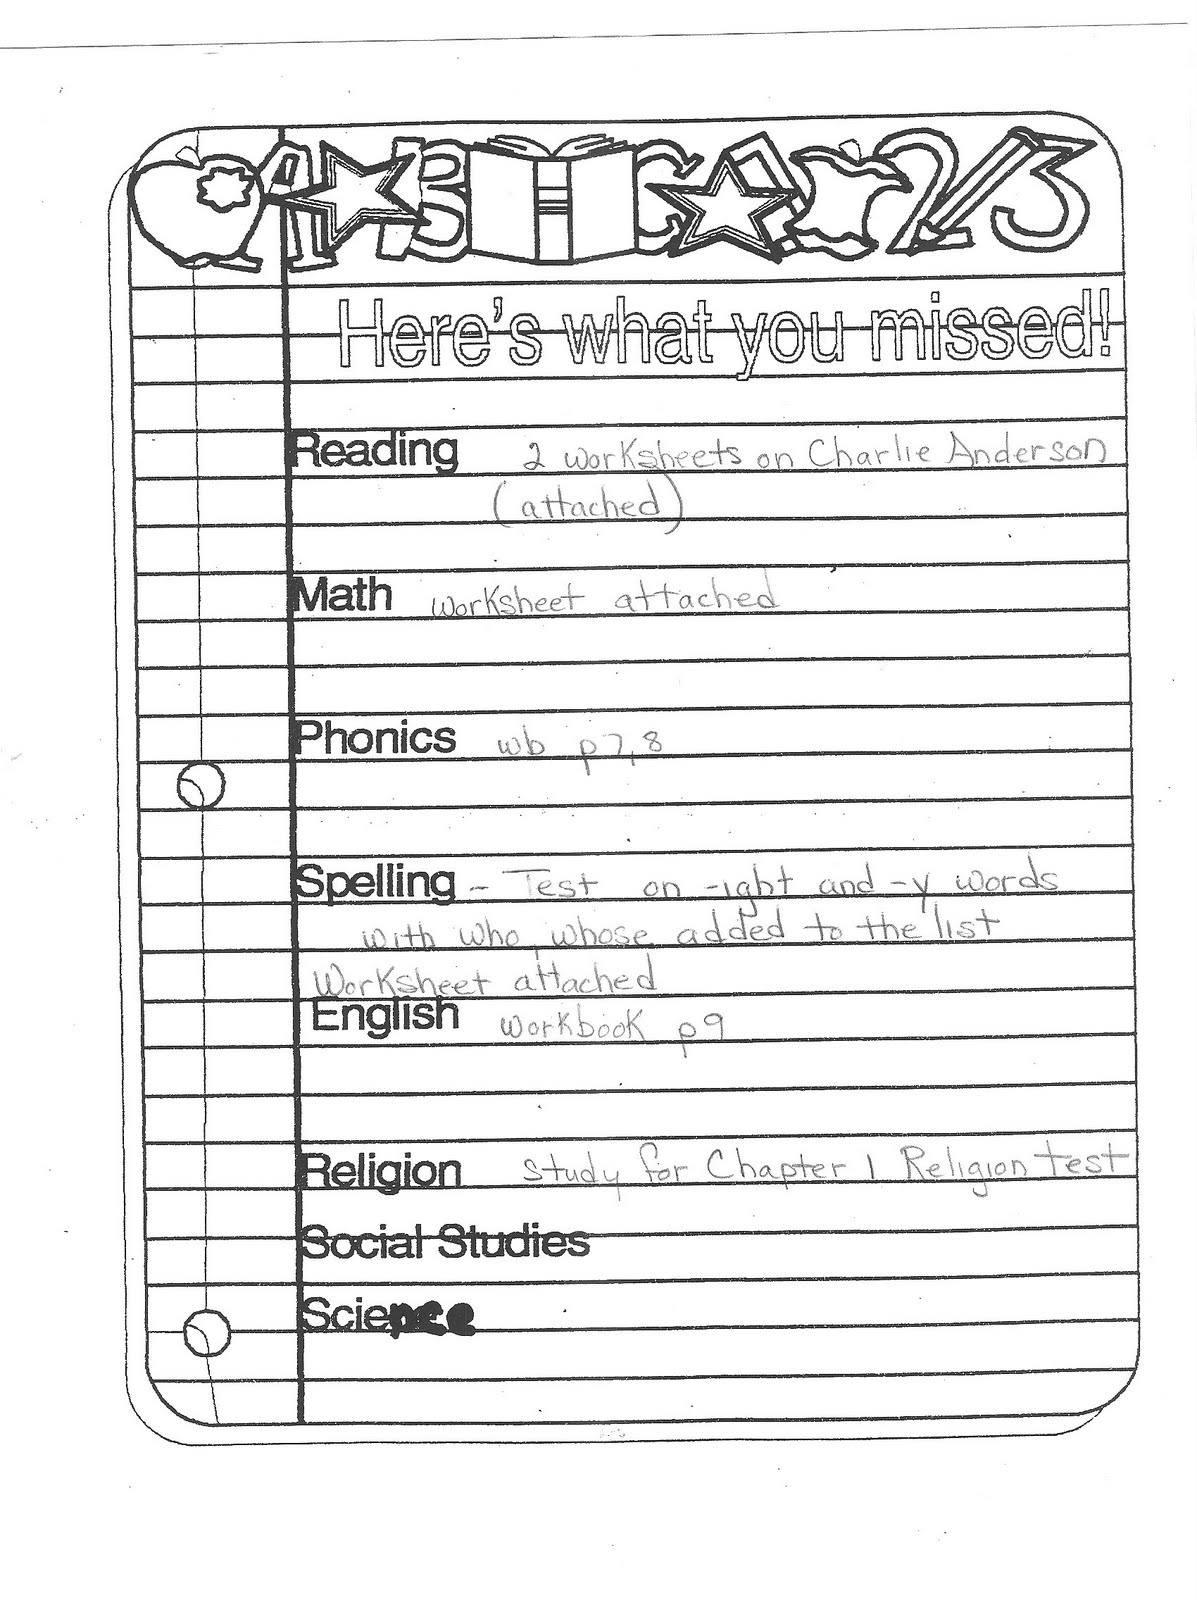 A B C 1 2 3
Here's what you missed!
Reading 2 worksheets on Charlie Anderson
(attached)
Math worksheet attached
Phonics wb p7,8
Spelling - Test on -ight and -y words
with who, whose added to the list
Worksheet attached
English workbook p9
Religion Study for Chapter 1 Religion test
Social Studies
Science